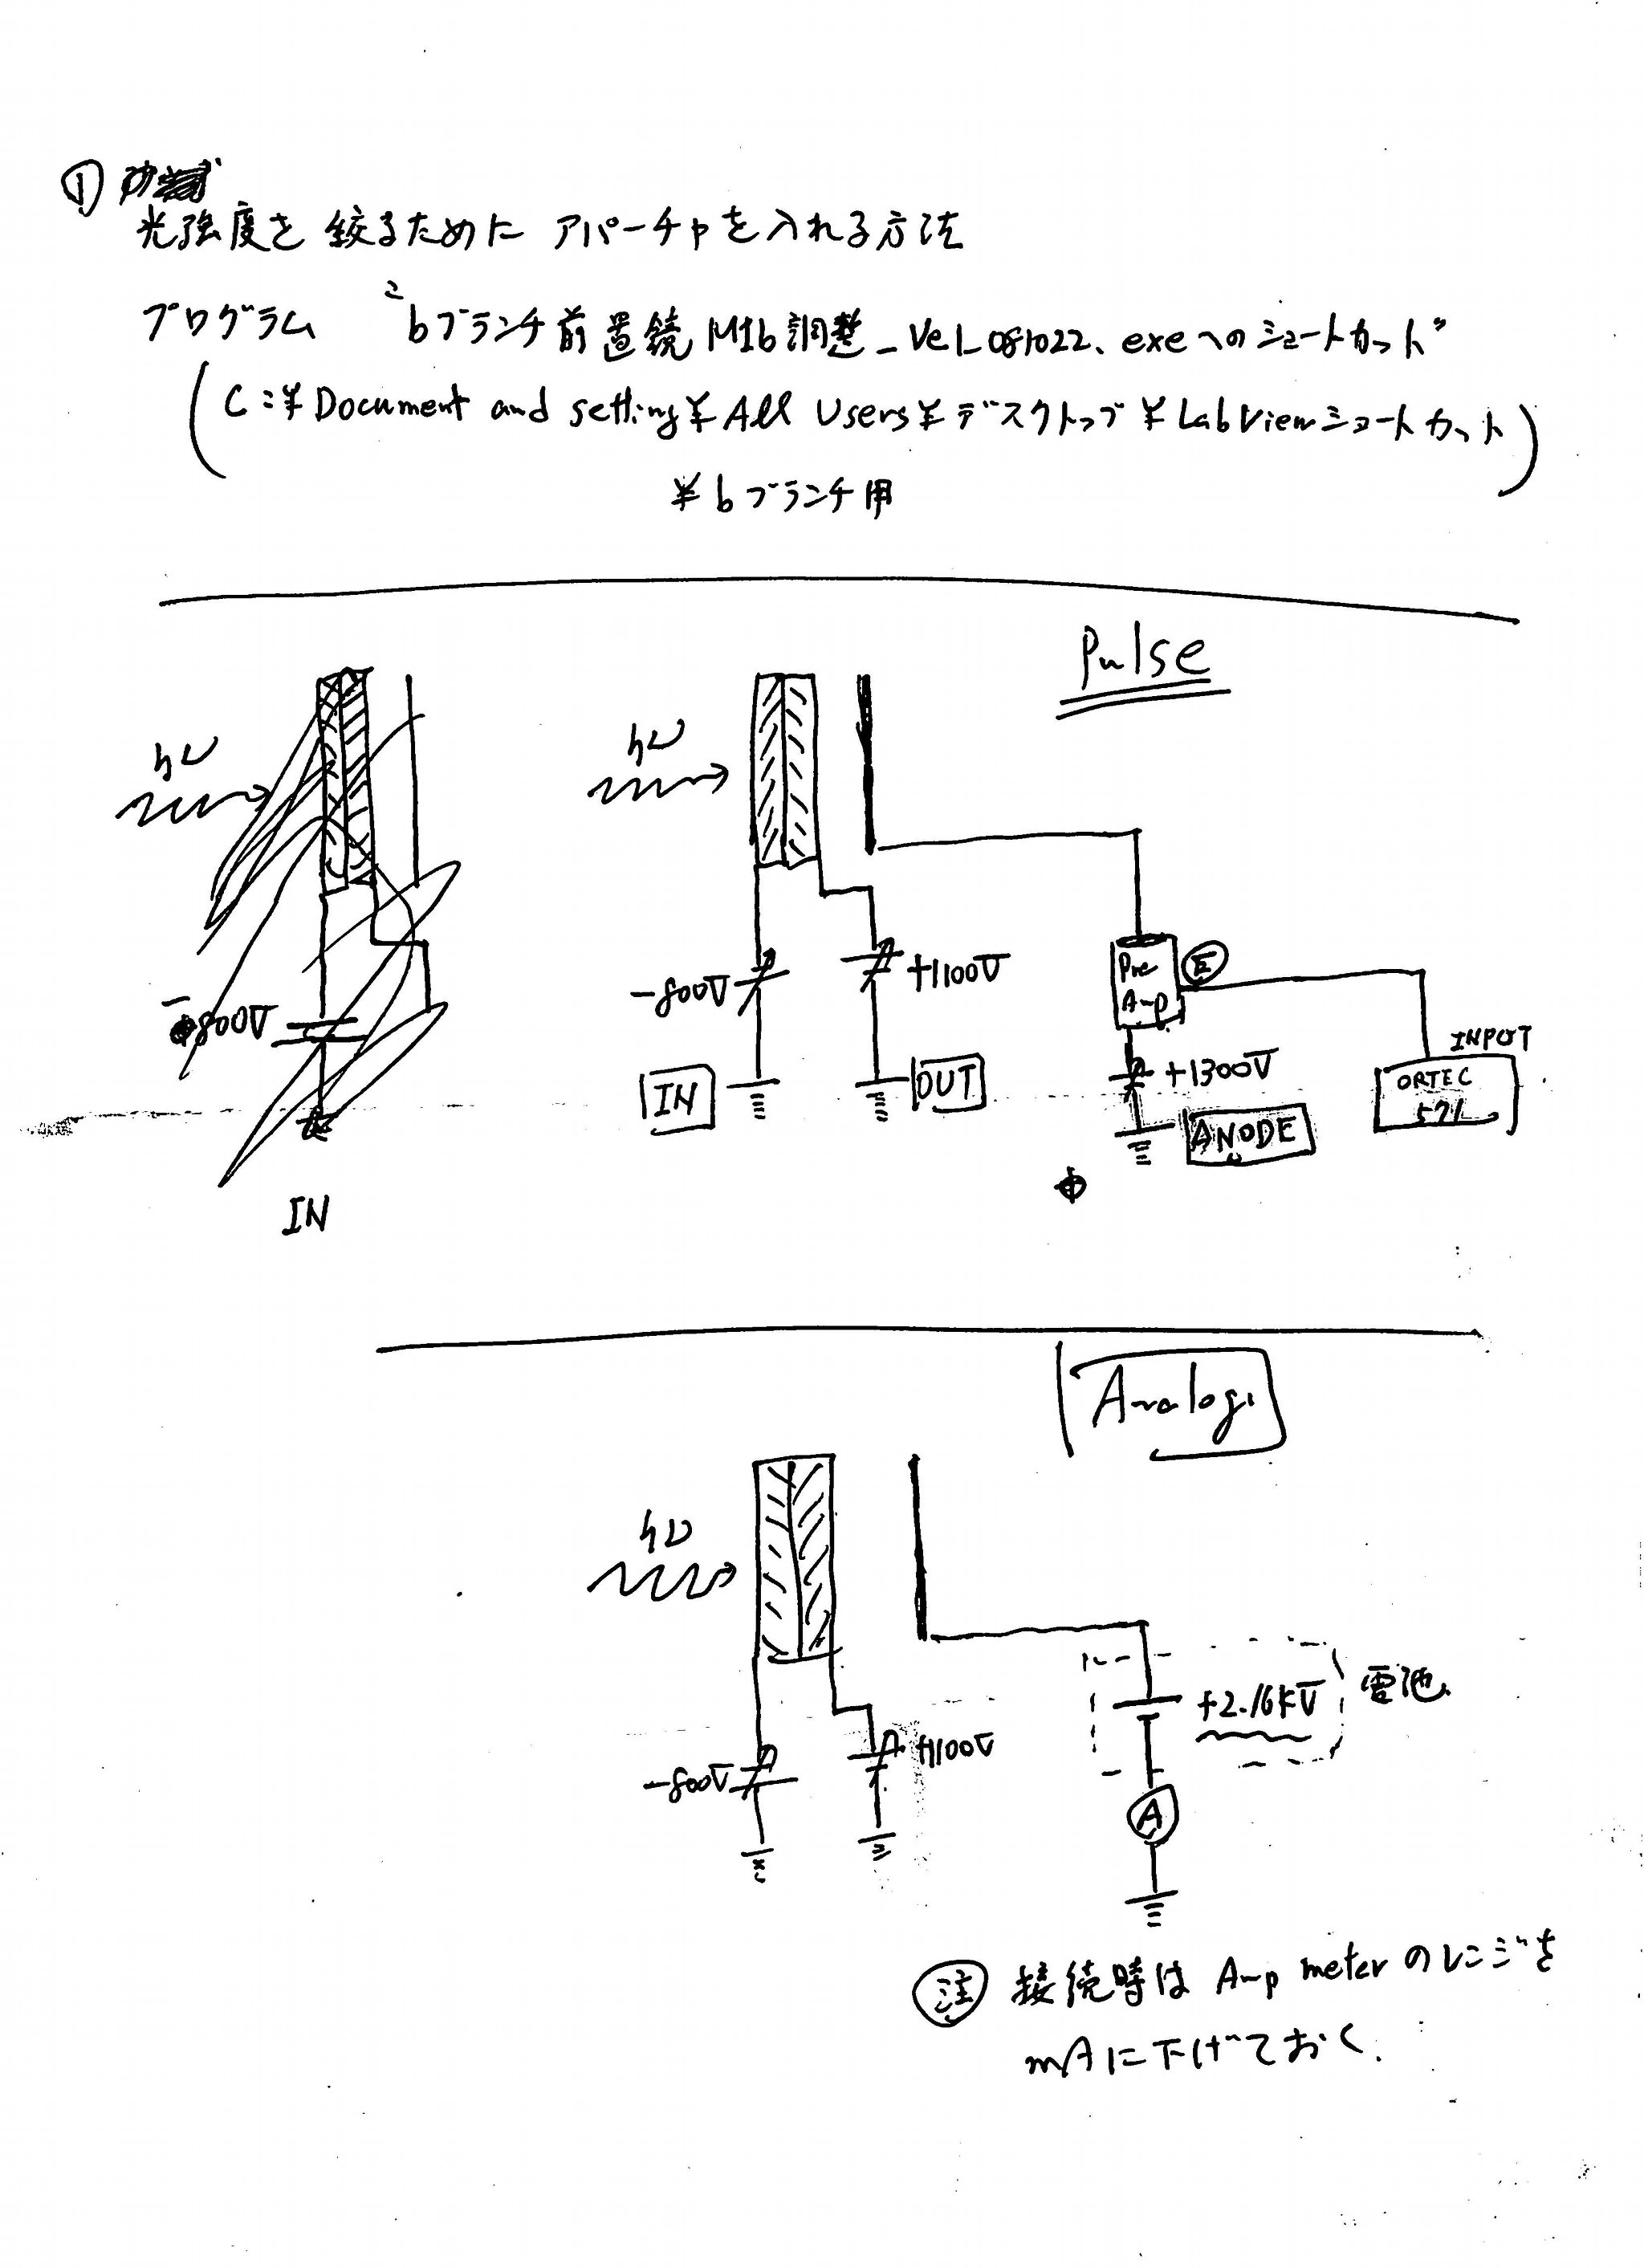 ①
光強度を絞るために アパーチャを入れる方法
プログラム "bブランチ前置鏡M1b調整_Ver_081022.exeへのショートカット"
(C:¥Document and setting¥All Users¥デスクトップ¥LabViewショートカット
¥bブランチ用)
Pulse
hν
hν
-800V
+1100V
Pre
Amp
Ⓔ
-800V
IN
OUT
+1300V
ANODE
INPUT
ORTEC
571
IN
Analog
hν
-800V
+1100V
+2.16kV
電池
A
注 接続時は Amp meter のレンジを
mAに下げておく.